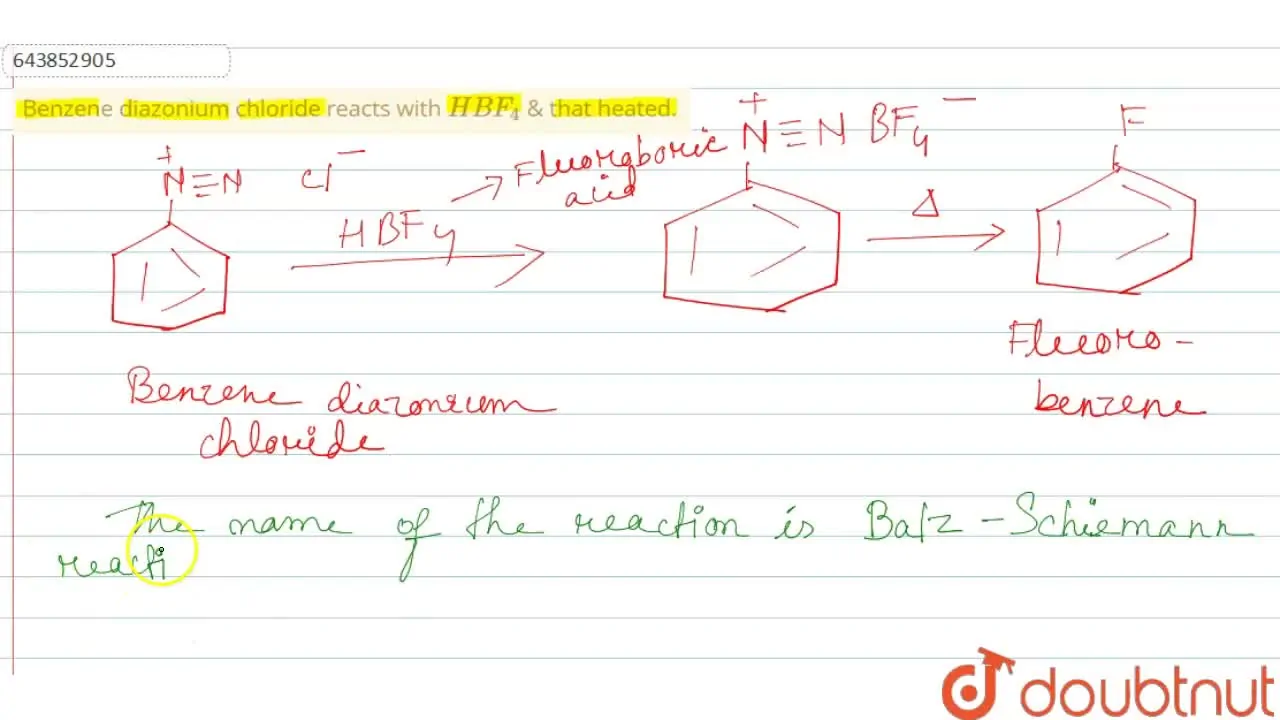 643852905
Benzene diazonium chloride reacts with HBF₄ & that heated.
+
N≡N Cl⁻
HBF₄
Fluoroboric
acid
+
N≡N BF₄⁻
Δ
F
Benzene diazonium
chloride
Fluoro-
benzene
The name of the reaction is Balz-Schiemann
reacti
doubtnut